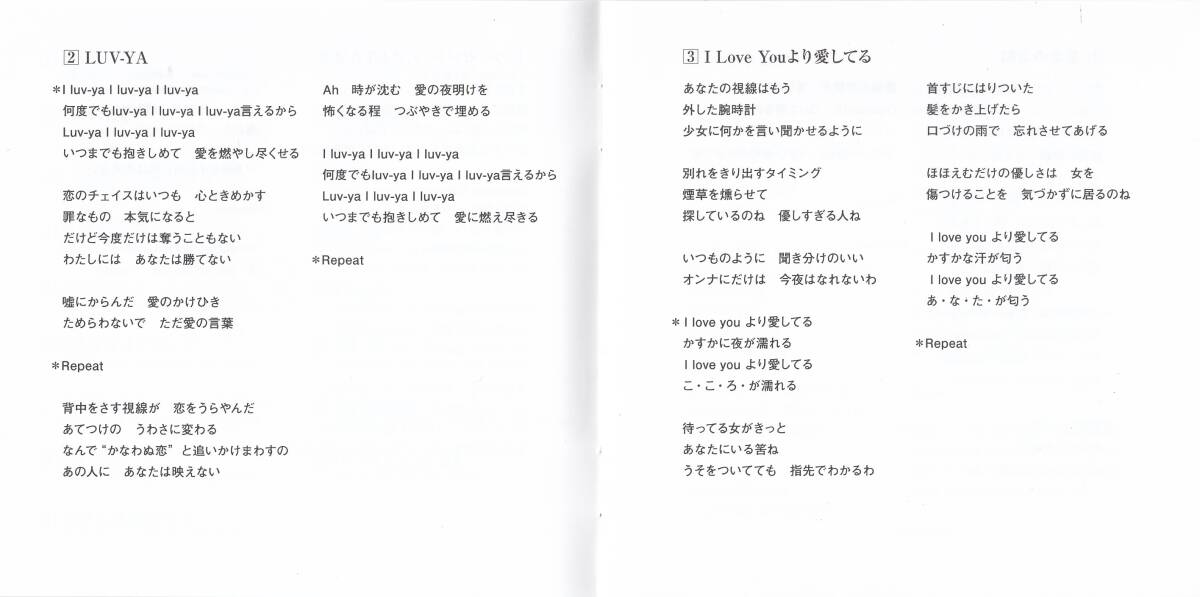 2 LUV-YA
＊I luv-ya I luv-ya I luv-ya
何度でもluv-ya I luv-ya I luv-ya言えるから
Luv-ya I luv-ya I luv-ya
いつまでも抱きしめて　愛を燃やし尽くせる
恋のチェイスはいつも　心ときめかす
罪なもの　本気になると
だけど今度だけは奪うこともない
わたしには　あなたは勝てない
嘘にからんだ　愛のかけひき
ためらわないで　ただ愛の言葉
＊Repeat
背中をさす視線が　恋をうらやんだ
あてつけの　うわさに変わる
なんで “かなわぬ恋” と追いかけまわすの
あの人に　あなたは映えない
Ah　時が沈む　愛の夜明けを
怖くなる程　つぶやきで埋める
I luv-ya I luv-ya I luv-ya
何度でもluv-ya I luv-ya I luv-ya言えるから
Luv-ya I luv-ya I luv-ya
いつまでも抱きしめて　愛に燃え尽きる
＊Repeat
3 I Love Youより愛してる
あなたの視線はもう
外した腕時計
少女に何かを言い聞かせるように
別れをきり出すタイミング
煙草を燻らせて
探しているのね　優しすぎる人ね
いつものように　聞き分けのいい
オンナにだけは　今夜はなれないわ
＊I love you より愛してる
かすかに夜が濡れる
I love you より愛してる
こ・こ・ろ・が濡れる
待ってる女がきっと
あなたにいる筈ね
うそをついてても　指先でわかるわ
首すじにはりついた
髪をかき上げたら
口づけの雨で　忘れさせてあげる
ほほえむだけの優しさは　女を
傷つけることを　気づかずに居るのね
I love you より愛してる
かすかな汗が匂う
I love you より愛してる
あ・な・た・が匂う
＊Repeat